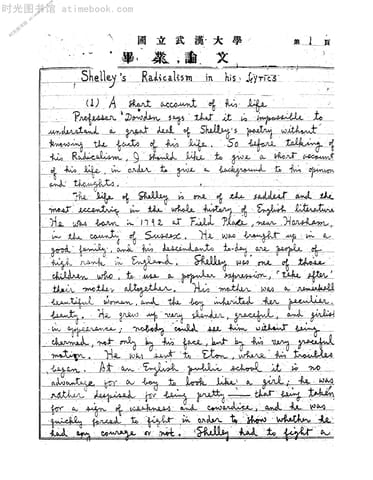 时光图书馆 atimebook.com
國立武漢大學
第 1 頁
畢業論文
Shelley's Radicalism in his Lyrics
(1) A short account of his life
Professor Dowden says that it is impossible to
understand a great deal of Shelley's poetry without
knowing the facts of his life. So before talking of
his Radicalism, I should like to give a short account
of his life, in order to give a background to his opinion
and thoughts.
The life of Shelley is one of the saddest and the
most eccentric in the whole history of English literature
He was born in 1792 at Field Place, near Horsham,
in the county of Sussex. He was brought up in a
good family, and his descendants to-day are people of
high rank in England. Shelley was one of those
children who, to use a popular expression, "take after"
their mother altogether. His mother was a remarkably
beautiful woman, and the boy inherited her peculiar
beauty. He grew up very slender, graceful, and girlish
in appearance; nobody could see him without being
charmed, not only by his face, but by his very graceful
motion. He was sent to Eton, where his troubles
began. At an English public school it is no
advantage for a boy to look like a girl; he was
rather despised for being pretty — that being taken
for a sign of weakness and cowardice, and he was
quickly forced to fight in order to show whether he
had any courage or not. Shelley had to fight a